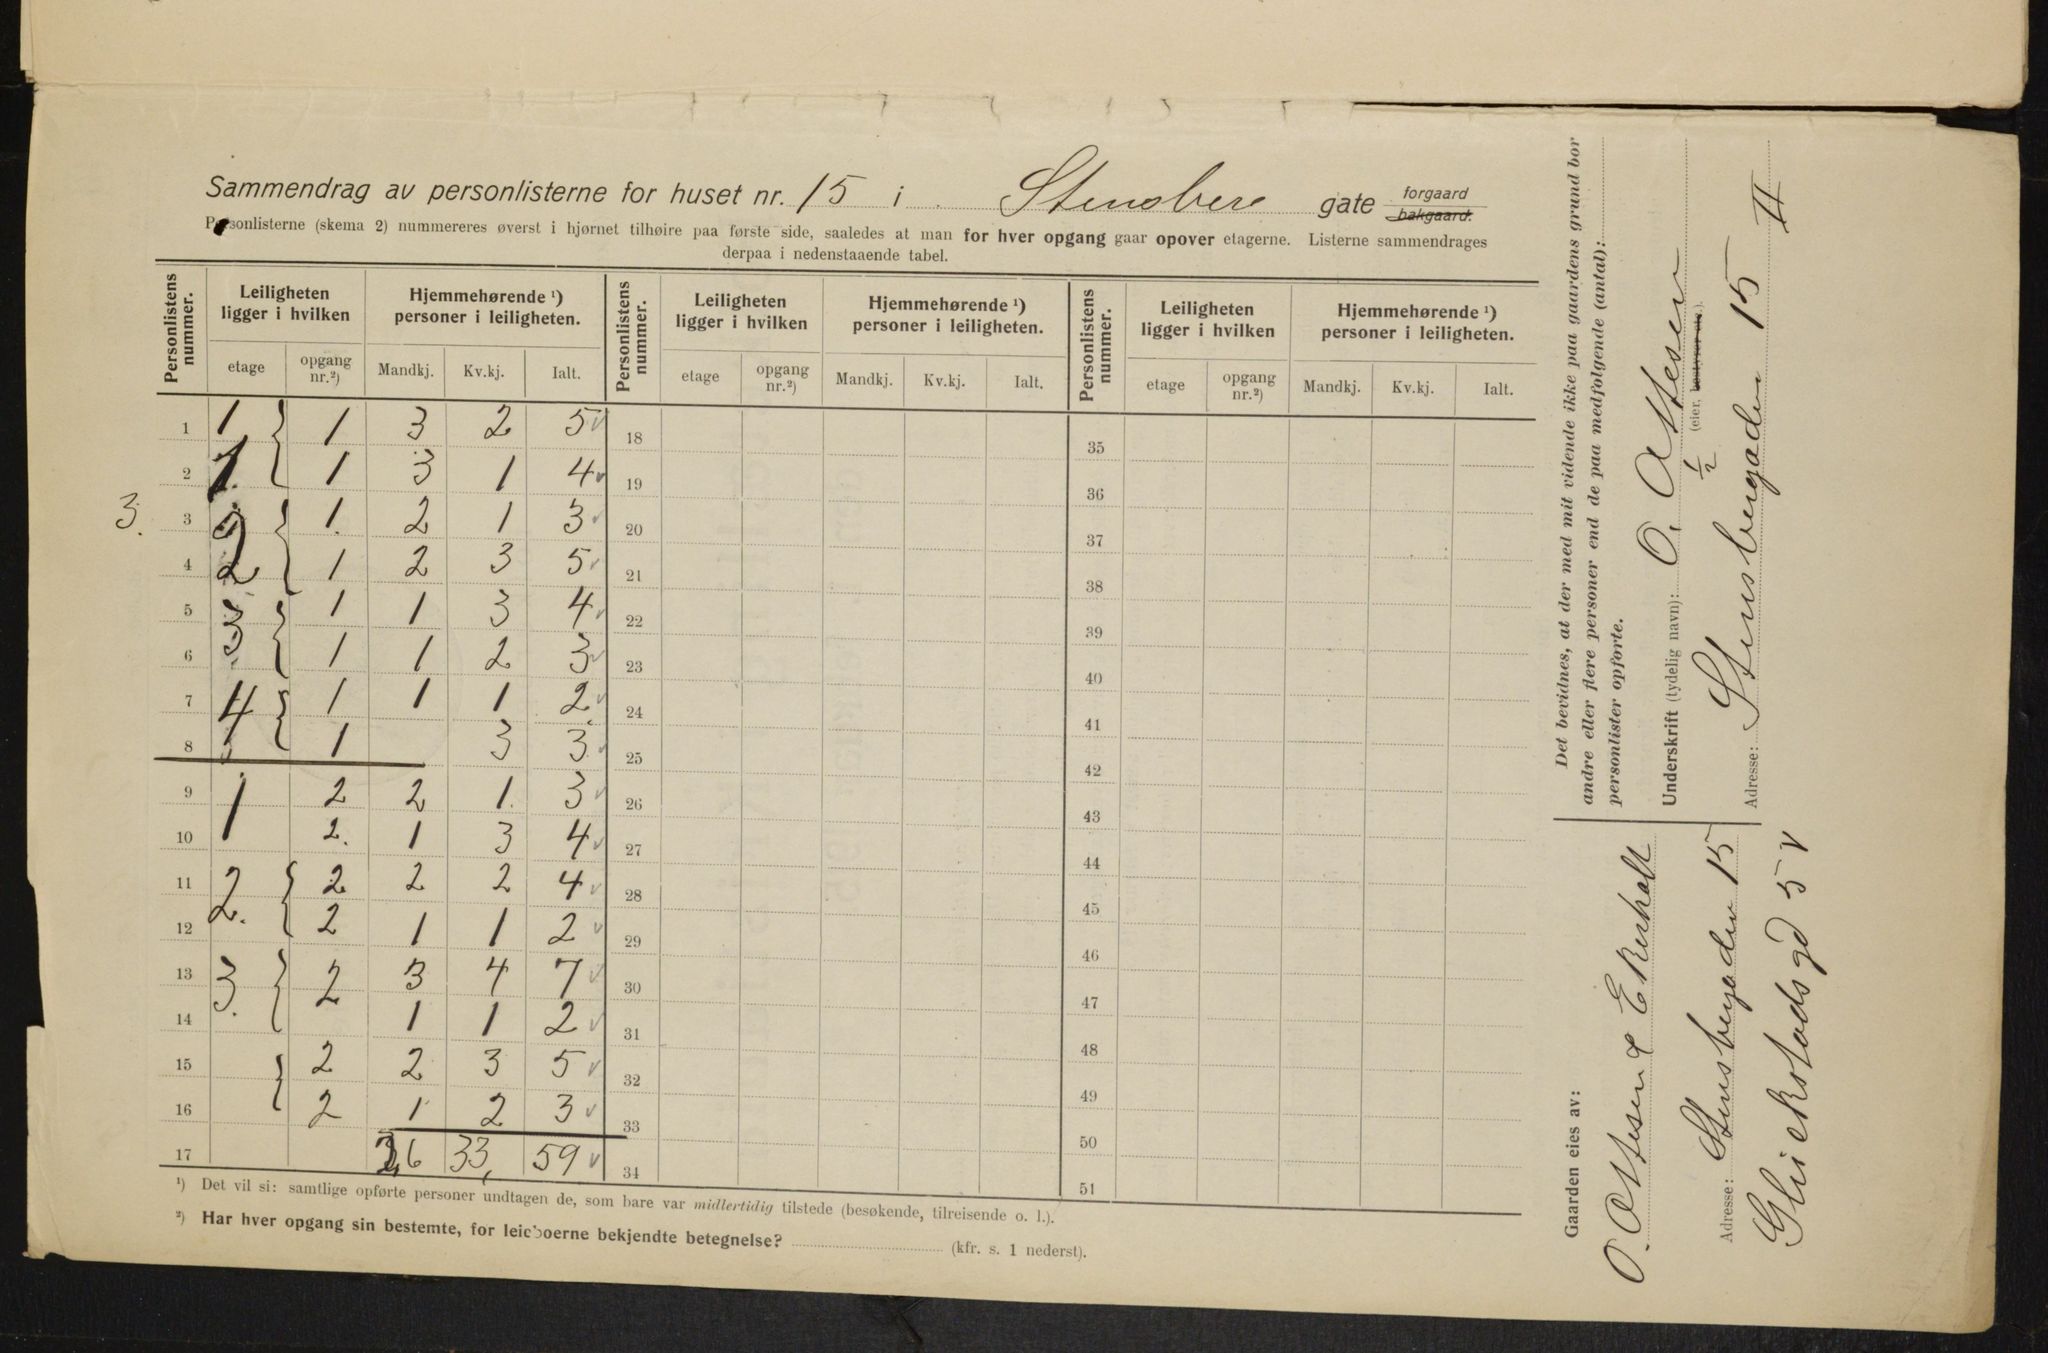 Sammendrag av personlisterne for huset nr. 15 i Stensberg gate forgaard bakgaard.
Personlisterne (skema 2) nummereres øverst i hjørnet tilhøire paa første side, saaledes at man for hver opgang gaar opover etagerne. Listerne sammendrages
derpaa i nedenstaaende tabel.
Personlistens nummer. Leiligheten ligger i hvilken Hjemmehørende ¹) personer i leiligheten. Personlistens nummer. Leiligheten ligger i hvilken Hjemmehørende ¹) personer i leiligheten. Personlistens nummer. Leiligheten ligger i hvilken Hjemmehørende ¹) personer i leiligheten.
etage opgang nr.²) Mandkj. Kv.kj. Ialt. etage opgang nr.²) Mandkj. Kv.kj. Ialt. etage opgang nr.²) Mandkj. Kv.kj. Ialt.
1 1 1 3 2 5 18 35
2 1 1 3 1 4 19 36
3. 3 2 1. 2 1 3 20 37
4 1 2 3 5 21 38
5 3 1 1 3 4 22 39
6 1 1 2 3 23 40
7 4 1 1 1 2 24 41
8 1 3 3 25 42
9 1 2 2 1. 3 26 43
10 2. 1 3 4 27 44
11 2. 2 2 2 4 28 45
12 2 1 1 2 29 46
13 3. 2 3 4 7 30 47
14 1 1 2 31 48
15 2 2 3 5 32 49
16 2 1 2 3 33 50
17 26 33, 59 34 51
¹) Det vil si: samtlige opførte personer undtagen de, som bare var midlertidig tilstede (besøkende, tilreisende o. l.).
²) Har hver opgang sin bestemte, for leieboerne bekjendte betegnelse? (kfr. s. 1 nederst).
Det bevidnes, at der med mit vidende ikke paa gaardens grund bor
andre eller flere personer end de paa medfølgende (antal):
personlister opførte.
Underskrift (tydelig navn): O. Ottesen
(eier, bestyrer etc.).
1/2
Adresse: Stensbergaden 15 II
Gaarden eies av:
O. Ottesen & Ekerholt
Adresse: Stensbergaden 15
Glückstads gd 5 V